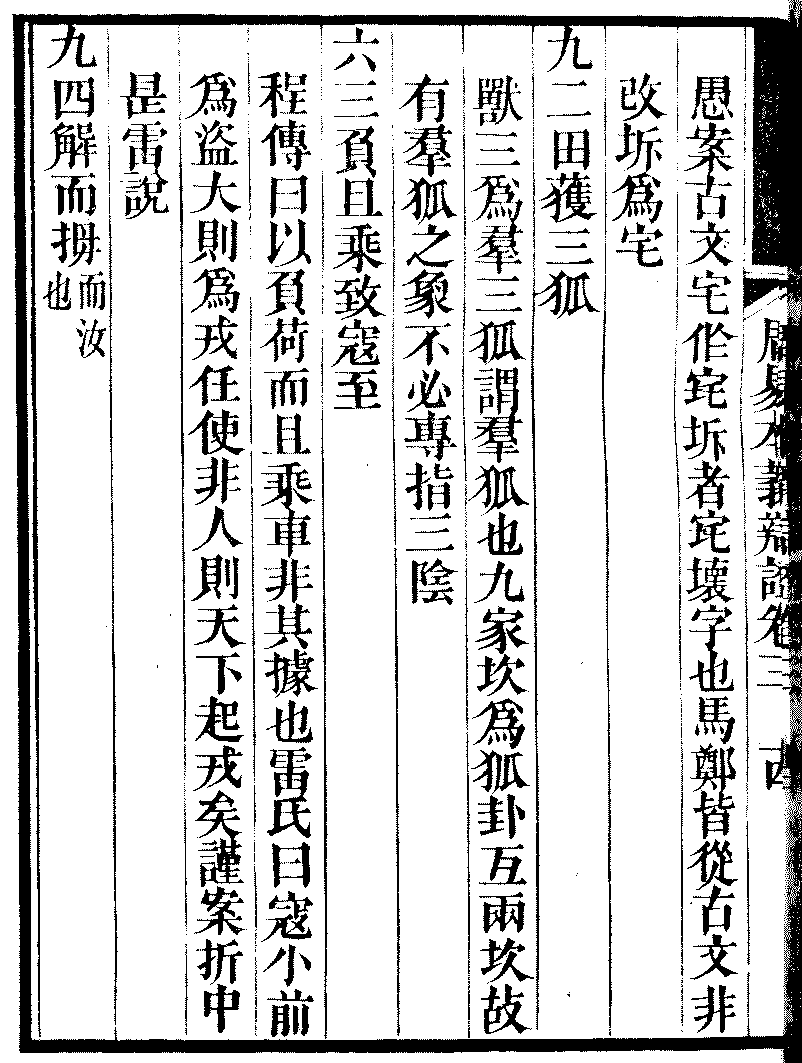 周易本義辯證卷三　十四
愚案古文宅作𡧪坼者𡧪壞字也馬鄭皆從古文非
改坼爲宅
九二田獲三狐
獸三爲羣三狐謂羣狐也九家坎爲狐卦互兩坎故
有羣狐之象不必專指三陰
六三負且乘致寇至
程傳曰以負荷而且乘車非其據也雷氏曰寇小前
爲盜大則爲戎任使非人則天下起戎矣謹案折中
是雷說
九四解而拇而汝也